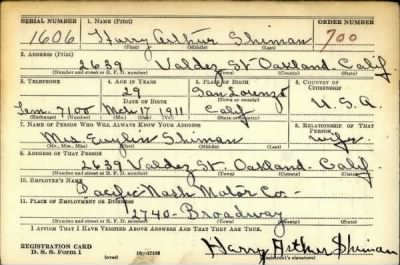 SERIAL NUMBER 1. NAME (Print) ORDER NUMBER
1606 Harry Arthur Shiman 700
(First) (Middle) (Last)
2. ADDRESS (Print)
2639 Valdez St. Oakland. Calif
(Number and street or R. F. D. number) (Town) (County) (State)
3. TELEPHONE 4. AGE IN YEARS 5. PLACE OF BIRTH 6. COUNTRY OF CITIZENSHIP
29 San Lorenzo
DATE OF BIRTH (Town or county)
Tem. 7100 17 1911 Calif U. S. A
(Exchange) (Number) (Mo.) (Day) (Yr.) (State or country)
7. NAME OF PERSON WHO WILL ALWAYS KNOW YOUR ADDRESS 8. RELATIONSHIP OF THAT PERSON
Shiman wife
(Mr., Mrs., Miss) (First) (Middle) (Last)
9. ADDRESS OF THAT PERSON
2639 Valdez St. Oakland. Calif
(Number and street or R. F. D. number) (Town) (County) (State)
10. EMPLOYER'S NAME
Pacific Nash Motor Co.
11. PLACE OF EMPLOYMENT OR BUSINESS
2740 - Broadway
(Number and street or R. F. D. number) (Town) (County) (State)
I AFFIRM THAT I HAVE VERIFIED ABOVE ANSWERS AND THAT THEY ARE TRUE.
REGISTRATION CARD
D. S. S. FORM 1 (over) Harry Arthur Shiman
(Registrant's signature)